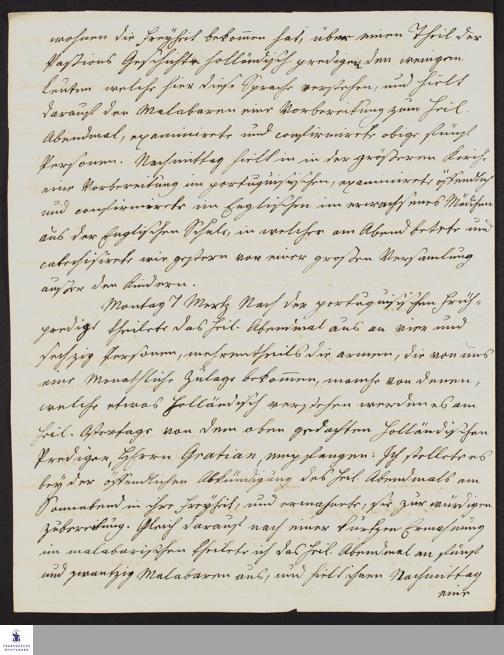 wohnen die Freyheit bekommen hat, über einen Theil der
Passions Geschichte Holländisch predigen, den wenigen
Leuten welche hier diese Sprache verstehen, und hielt
darauf den Malabaren eine Vorbereitung zum heil.
Abendmal, examinirete und confirmirete obige fünf
Personen. Nachmittag hielt in der größeren Kirche
eine Vorbereitung im portugiesischen, examinirete öffentlich
und confirmirete im Englischen ein erwachsenes Mädchen
aus der Englischen Schule, in welcher am Abend betete und
catechisirete wie gestern vor einer großen Versamlung
außer den Kindern.
Montag 7 Mertz Nach der portugiesischen Früh-
predigt theilete das heil. Abendmal aus an vier und
sechzig Personen, mehrentheils die armen, die von uns
eine Monathliche Zulage bekommen, manche von denen,
welche etwas Holländisch verstehen werden es am
heil. Ostertage von dem oben gedachten Holländischen
Prediger, Herrn Gratian, empfangen: Ich stellete es
bey der öffentlichen Abkündigung des heil Abendmals am
Sonnabend in ihre Freyheit, und ermahnete, sie zur würdigen
Zubereitung. Gleich darauf nach einer kurtzen Ermahnung
im malabarischen theilete ich das heil. Abendmal an fünf
und zwantzig Malabaren aus, und hielt ihnen Nachmittag
eine
FRANCKESCHE
STIFTUNGEN